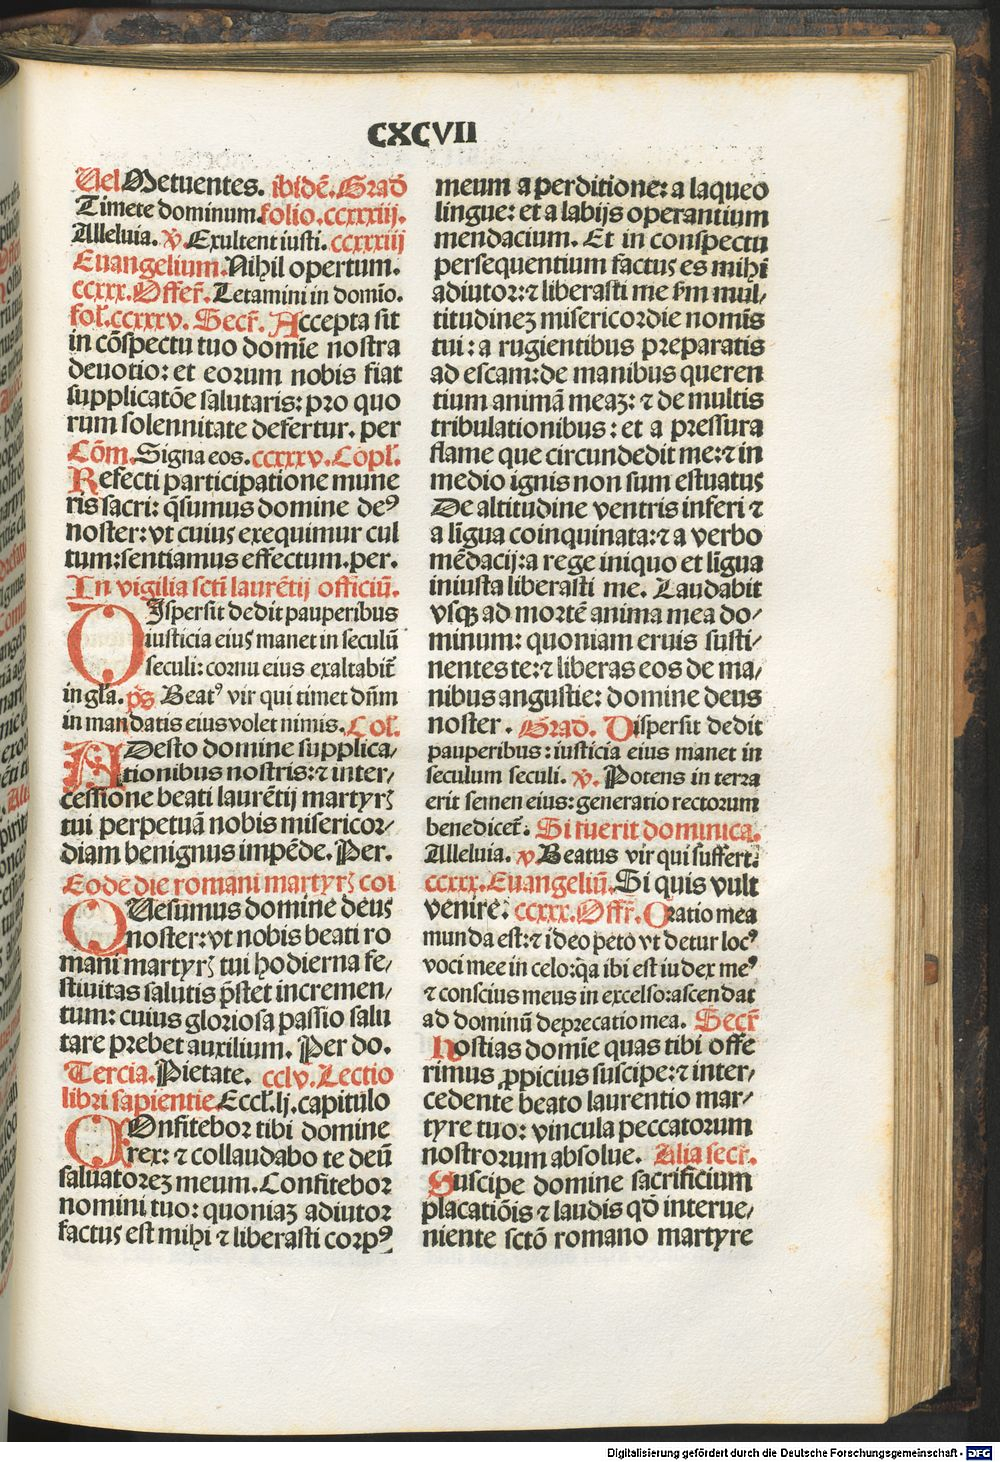 CXCVII
Uel Metuentes. ibidē. Grad̄
Timete dominum folio. ccxxxiij.
Alleluia. ℣. Exultent iusti. ccxxxiij
Euangelium. Nihil opertum.
ccxxx. Offer̄. Letamini in domīo.
fol. ccxxxv. Secr̄. Accepta sit
in cōspectu tuo domīe nostra
deuotio: et eorum nobis fiat
supplicatōe salutaris: pro quo
rum solennitate defertur. per
Cōm. Signa eos. ccxxxv. Cōpl.
Refecti participatione mune
ris sacri: q̄sumus domine deꝰ
noster: vt cuius exequimur cul
tum: sentiamus effectum. per.
In vigilia scti laurētij officiū.
DIspersit dedit pauperibus
iusticia eius manet in seculū
seculi: cornu eius exaltabit̄
in gl̄a. p̄s Beatꝰ vir qui timet dn̄m
in mandatis eius volet nimis. Col.
ADesto domine supplica⸗
tionibus nostris: ⁊ inter⸗
cessione beati laurētij martyrꝭ
tui perpetuā nobis misericor⸗
diam benignus impēde. Per.
Eodē die romani martyrꝭ col
QUesumus domine deus
noster: vt nobis beati ro
mani martyrꝭ tui hodierna fe⸗
stiuitas salutis p̄stet incremen⸗
tum: cuius gloriosa passio salu
tare prebet auxilium. Per do.
Tercia. Pietate. cclv. Lectio
libri sapientie. Eccl. lj. capitulo
COnfitebor tibi domine
rex: ⁊ collaudabo te deū
saluatoreꝫ meum. Confitebor
nomini tuo: quoniaꝫ adiutor
factus est mihi ⁊ liberasti corpꝰ
meum a perditione: a laqueo
lingue: et a labijs operantium
mendacium. Et in conspectu
persequentium factus es mihi
adiutor: ⁊ liberasti me s̄m mul⸗
titudineꝫ misericordie nomīs
tui: a rugientibus preparatis
ad escam: de manibus queren
tium animā meaꝫ: ⁊ de multis
tribulationibus: et a pressura
flame que circundedit me: ⁊ in
medio ignis non sum estuatus
De altitudine ventris inferi ⁊
a līgua coinquinata: ⁊ a verbo
mēdacij: a rege iniquo et līgua
iniusta liberasti me. Laudabit
vsqꝫ ad mortē anima mea do⸗
minum: quoniam eruis susti⸗
nentes te: ⁊ liberas eos de ma⸗
nibus angustie: domine deus
noster. Grad̄. Dispersit dedit
pauperibus: iusticia eius manet in
seculum seculi. ℣. Potens in terra
erit semen eius: generatio rectorum
benedicet̄. Si fuerit dominica.
Alleluia. ℣ Beatus vir qui suffert.
ccxxx. Euangeliū. Si quis vult
venire. ccxxx. Offr̄. Oratio mea
munda est: ⁊ ideo peto vt detur locꝰ
voci mee in celo: q̄a ibi est iudex meꝰ
⁊ conscius meus in excelso: ascendat
ad dominū deprecatio mea. Secr̄
Hostias domīe quas tibi offe
rimus ꝓpicius suscipe: ⁊ inter⸗
cedente beato laurentio mar⸗
tyre tuo: vincula peccatorum
nostrorum absolue. Alia secr̄.
Suscipe domine sacrificium
placatiōis ⁊ laudis qd̄ interue⸗
niente sctō romano martyre
Digitalisierung gefördert durch die Deutsche Forschungsgemeinschaft - DFG